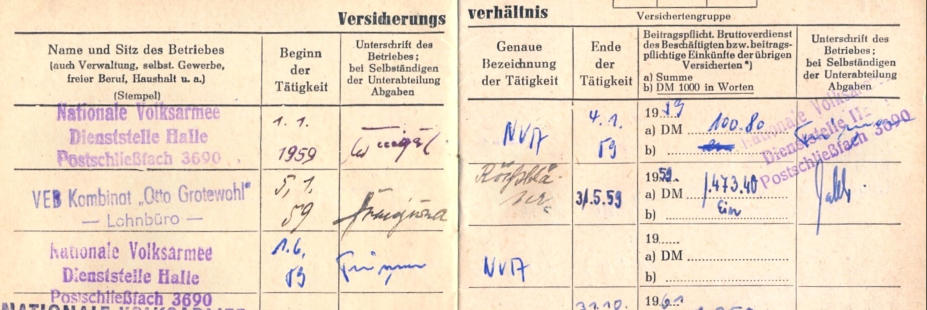 Versicherungs verhältnis
Versichertengruppe
Name und Sitz des Betriebes
(auch Verwaltung, selbst. Gewerbe,
freier Beruf, Haushalt u. a.)
(Stempel)
Beginn
der
Tätigkeit
Unterschrift des
Betriebes;
bei Selbständigen
der Unterabteilung
Abgaben
Genaue
Bezeichnung
der Tätigkeit
Ende
der
Tätigkeit
Beitragspflicht. Bruttoverdienst
des Beschäftigten bzw. beitrags-
pflichtige Einkünfte der übrigen
Versicherten *)
a) Summe
b) DM 1000 in Worten
Unterschrift des
Betriebes;
bei Selbständigen
der Unterabteilung
Abgaben
Nationale Volksarmee
Dienststelle Halle
Postschließfach 3690
1. 1.
1959
NVA
4. 1.
59
1959
a) DM 100.80
b)
Nationale Volksarmee
Dienststelle Halle
Postschließfach 3690
VEB Kombinat „Otto Grotewohl"
— Lohnbüro —
5. 1.
59
31.5.59
1959
a) DM 1.473.40
b) Ein
Nationale Volksarmee
Dienststelle Halle
Postschließfach 3690
1.6.
59
NVA
19
a) DM
b)
NATIONALE VOLKSARMEE
31.10.
1961